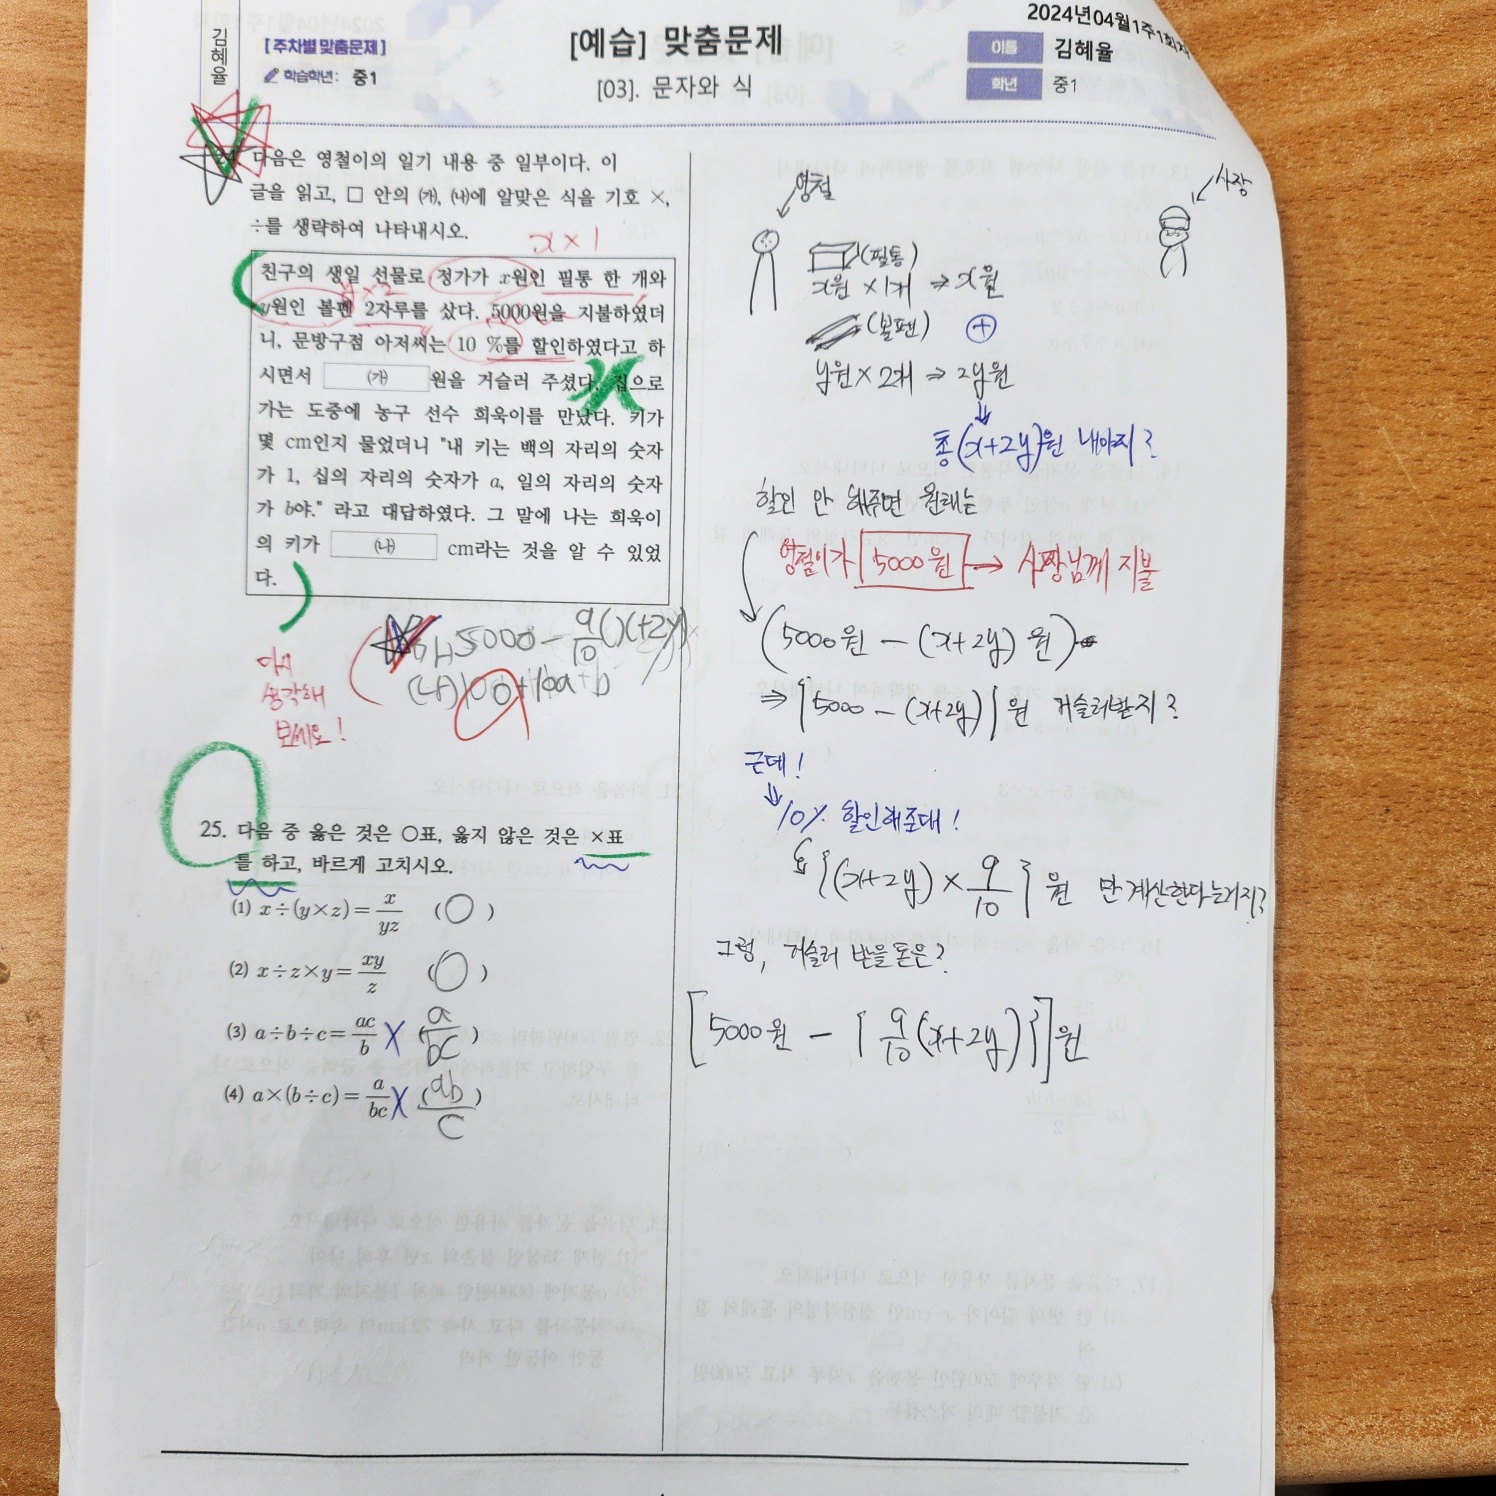 김혜율
[ 주차별 맞춤문제 ]
학습학년 : 중1
[예습] 맞춤문제
[03]. 문자와 식
2024년04월1주1회차
이름 김혜율
학년 중1
다음은 영철이의 일기 내용 중 일부이다. 이
글을 읽고, □ 안의 ㈎, ㈏에 알맞은 식을 기호 ×,
÷를 생략하여 나타내시오.
x × 1
친구의 생일 선물로 정가가 x원인 필통 한 개와
y × 2
y원인 볼펜 2자루를 샀다. 5000원을 지불하였더
니, 문방구점 아저씨는 10 %를 할인하였다고 하
시면서 ㈎ 원을 거슬러 주셨다. 집으로
가는 도중에 농구 선수 희욱이를 만났다. 키가
몇 cm인지 물었더니 "내 키는 백의 자리의 숫자
가 1, 십의 자리의 숫자가 a, 일의 자리의 숫자
가 b야." 라고 대답하였다. 그 말에 나는 희욱이
의 키가 ㈏ cm라는 것을 알 수 있었
다.
5000 - 9/10 (x+2y)
(나) 100+10a+b
다시
생각해
보세요!
25. 다음 중 옳은 것은 ○표, 옳지 않은 것은 ×표
를 하고, 바르게 고치시오.
(1) x÷(y×z)= x/yz (○)
(2) x÷z×y= xy/z (○)
(3) a÷b÷c= ac/b X (a/bc)
(4) a×(b÷c)= a/bc X (ab/c)
영철
사장
(필통)
x원 ×1개 ⇒ x원
(볼펜) +
y원 × 2개 ⇒ 2y원
총 (x+2y)원 내야지?
할인 안 해주면 원래는
영철이가 5000원 → 사장님께 지불
(5000원 - (x+2y) 원)
⇒ {5000 - (x+2y)} 원 거슬러받지?
근데!
10% 할인해준대!
{(x+2y) × 9/10} 원 만 계산한다는거지?
그럼, 거슬러 받을 돈은?
[5000원 - { 9/10 (x+2y)}]원